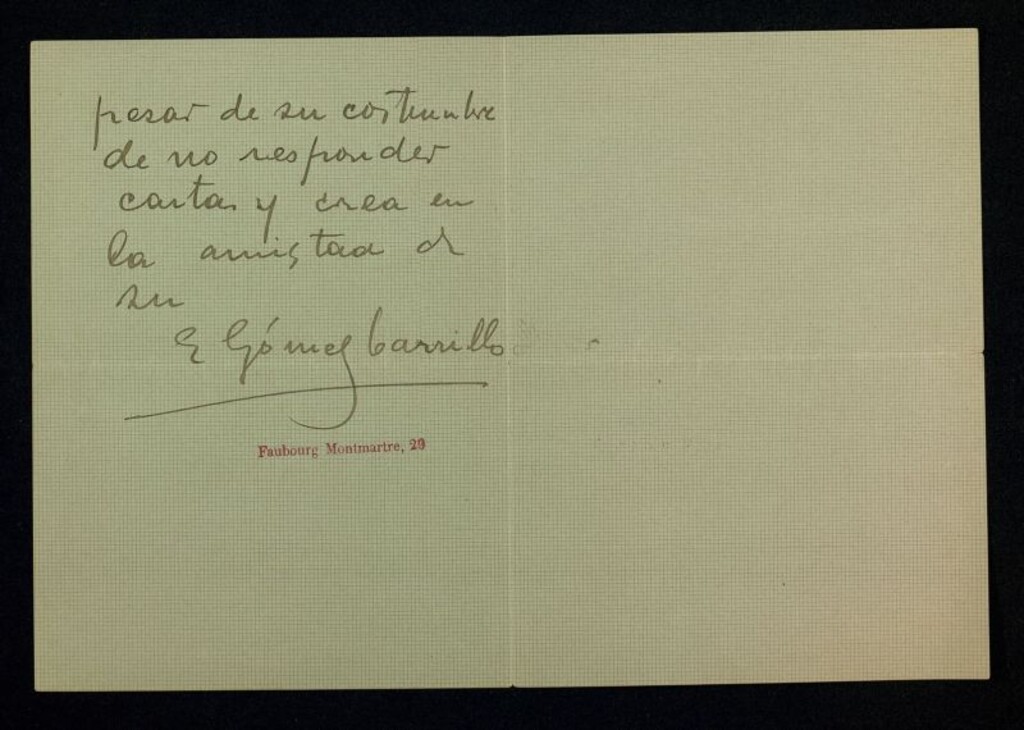 pesar de su costumbre
de no responder
cartas y crea en
la amistad de
su
E Gómez Carrillo
Faubourg Montmartre, 29